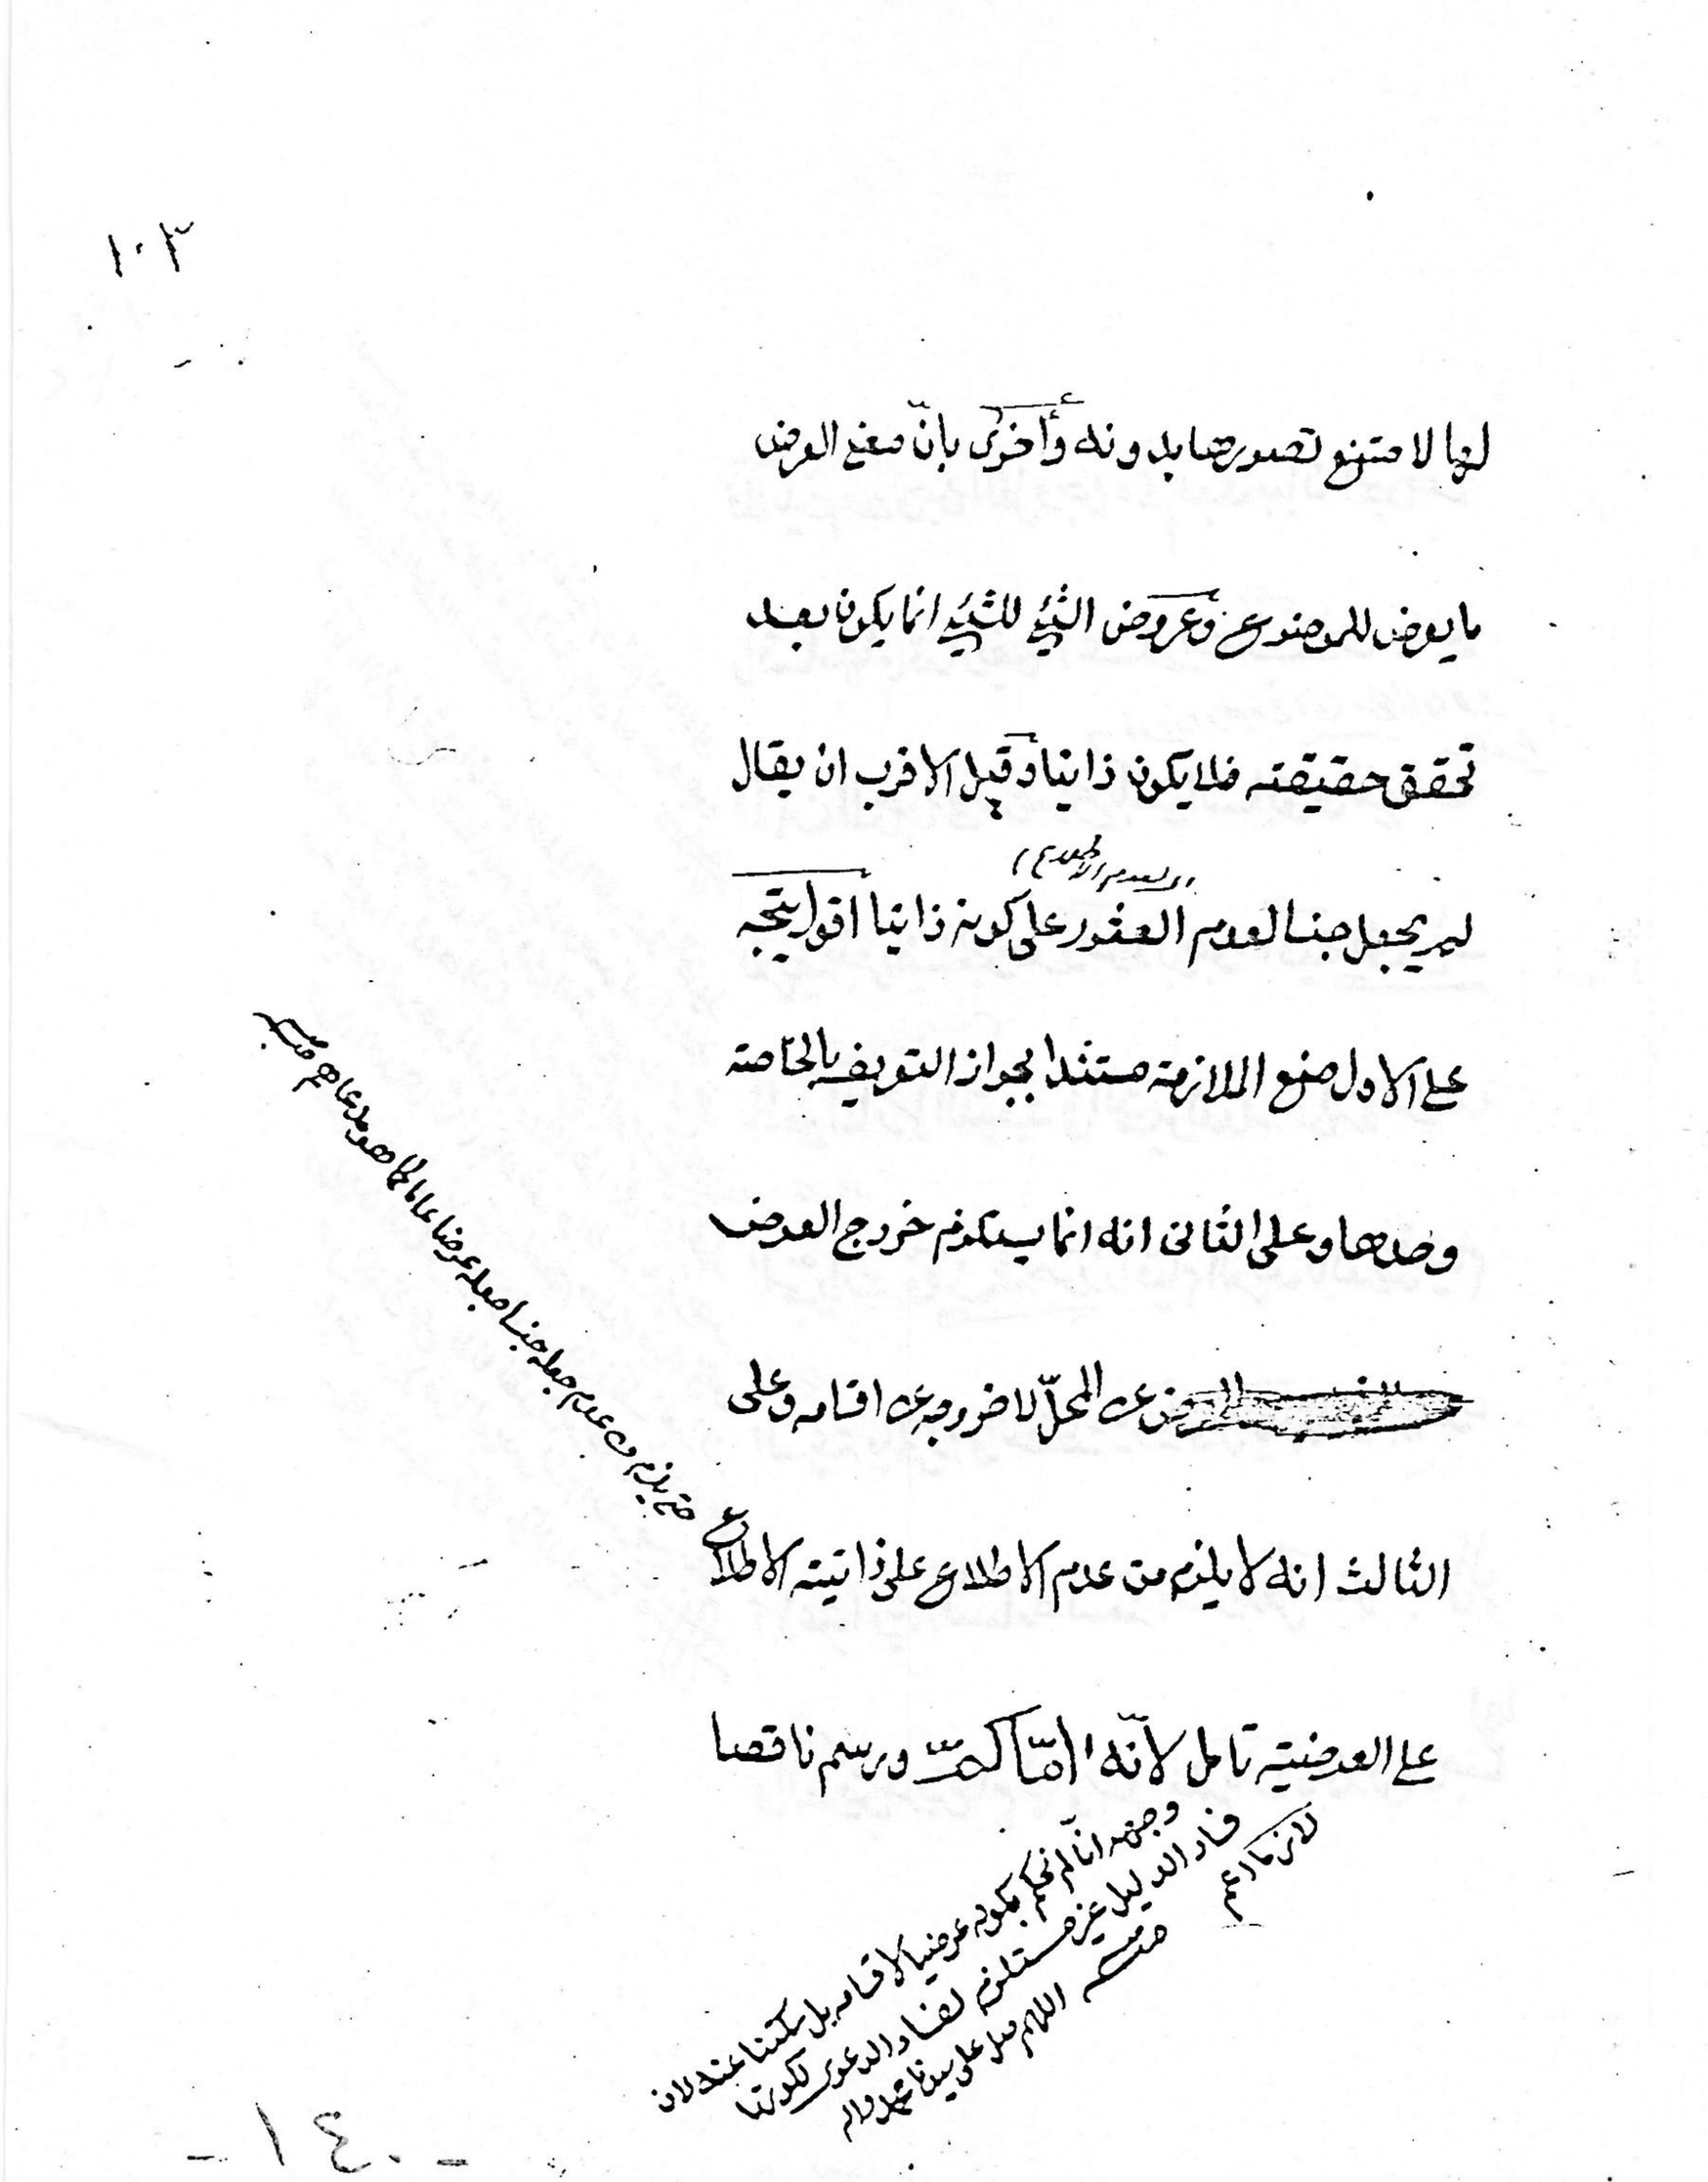 ١٠٣
لها لامتنع تصورها بدونه وأخرى بانّ معنى العرض
ما يعرض للموضوع وعروض الشئ للشئ انما يكون بعد
تحقق حقيقته فلا يكون ذاتيا وقيل الاقرب ان يقال
لم يجعل جنسا لعدم العثور على كونه ذاتيا اقول يتجه
على الاول منع الملازمة مستندا بجواز التعريف بالخاصة
وحدها وعلى الثانى انه انما يستلزم خروج العرض
عن المحلّ لا خروجه عن اقسامه وعلى
الثالث انه لا يلزم من عدم الاطلاع على ذاتيته الاطلاع
على العرضية تامل لأنّه امّا ورسم ناقصا
حتى يلزم من عدم جعله جنسا جعله عرضا عاما كما هو مدعاهم
وجهه انا لم نحكم بكونه عرضيا لاقسامه بل سكتنا عنه لان
فساد الدليل غير مستلزم لفساد الدعوى لكونه
لازما اعم
منه اللهم صل على سيدنا محمد واله
- ١٤٠ -